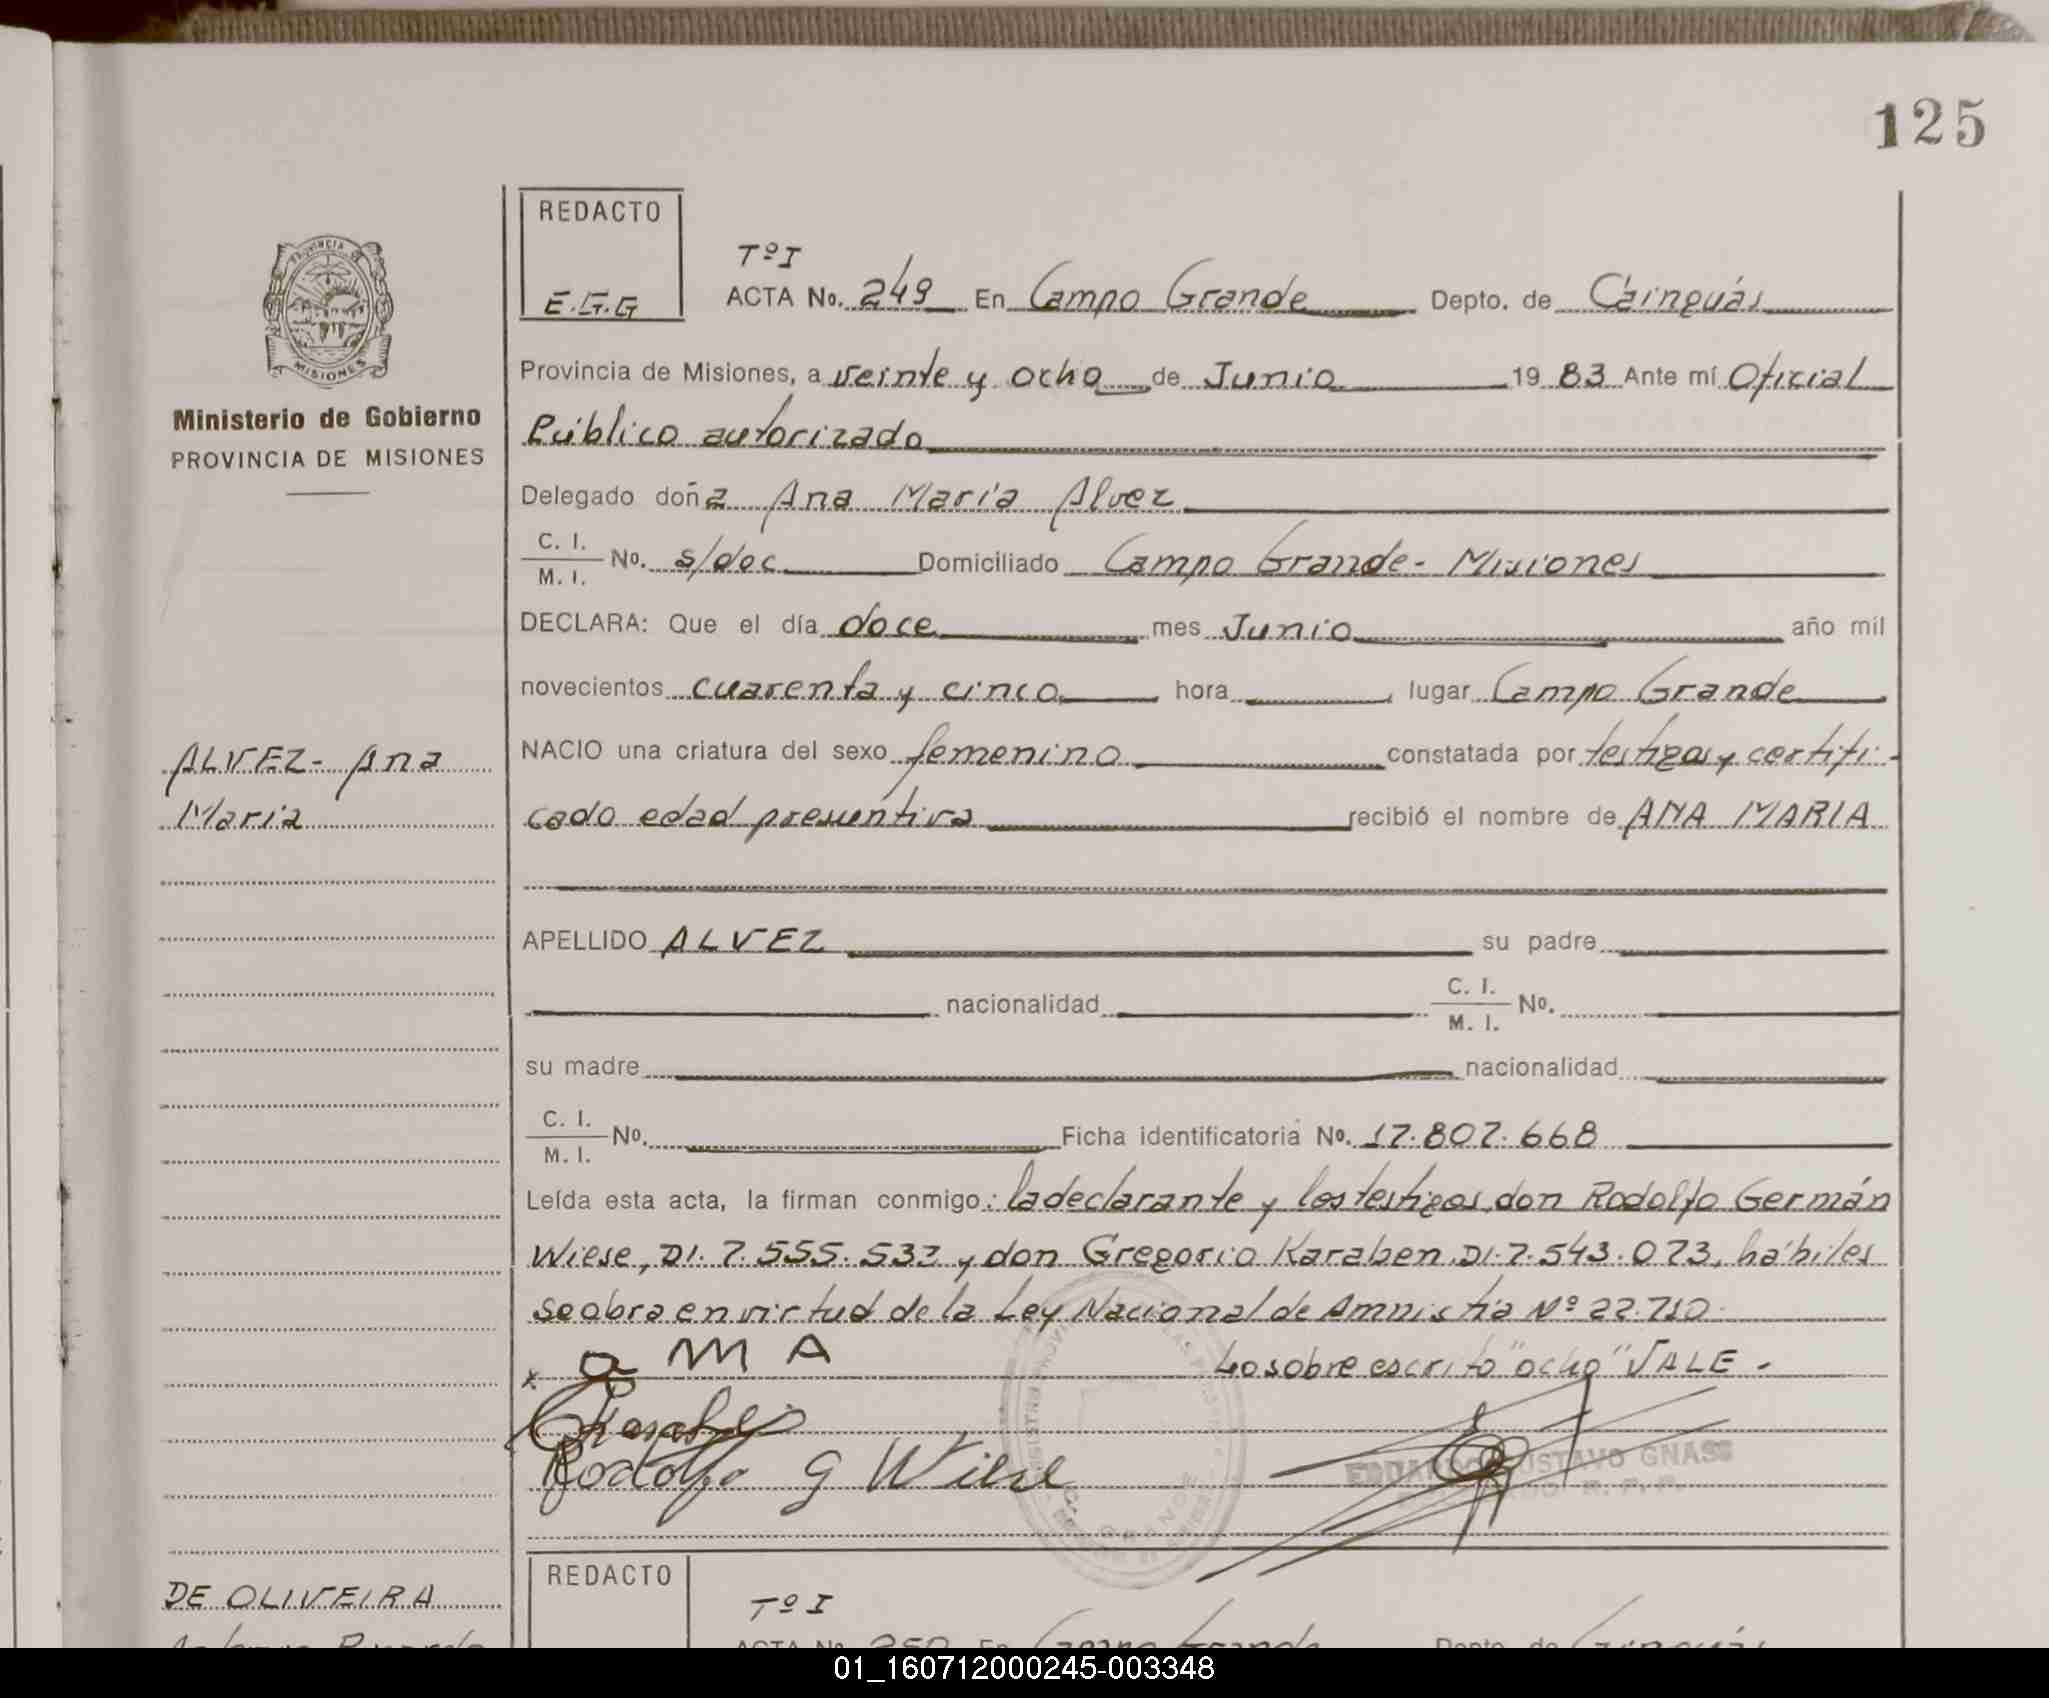 125
REDACTO
E.G.G
Tº I
ACTA No. 249 En Campo Grande Depto. de Cainguás
PROVINCIA
MISIONES
Provincia de Misiones, a veinte y ocho de Junio 19 83 Ante mí Oficial
Ministerio de Gobierno
PROVINCIA DE MISIONES
Público autorizado
Delegado doña Ana María Alvez
C. I.
M. I. No. s/doc Domiciliado Campo Grande - Misiones
DECLARA: Que el día doce mes Junio año mil
novecientos cuarenta y cinco hora , lugar Campo Grande
ALVEZ - Ana
María
NACIO una criatura del sexo femenino constatada por testigos y certifi-
cado edad presuntiva recibió el nombre de ANA MARIA
APELLIDO ALVEZ su padre
nacionalidad C. I.
M. I. No.
su madre nacionalidad
C. I.
M. I. No. Ficha identificatoria No. 17.807.668
Leída esta acta, la firman conmigo: la declarante y los testigos, don Rodolfo Germán
Wiese, DI. 7.555.533 y don Gregorio Karaben DI. 7.543.073, hábiles
se obra en virtud de la Ley Nacional de Amnistía Nº 22.710.
x a M A Lo sobre escrito "ocho" VALE -
Rodolfo G Wiese
EDUARDO GUSTAVO GNASS
GRANDE
DE OLIVEIRA
REDACTO
Tº I
ACTA No. 250 En Campo Grande Depto. de Cainguás
01_160712000245-003348